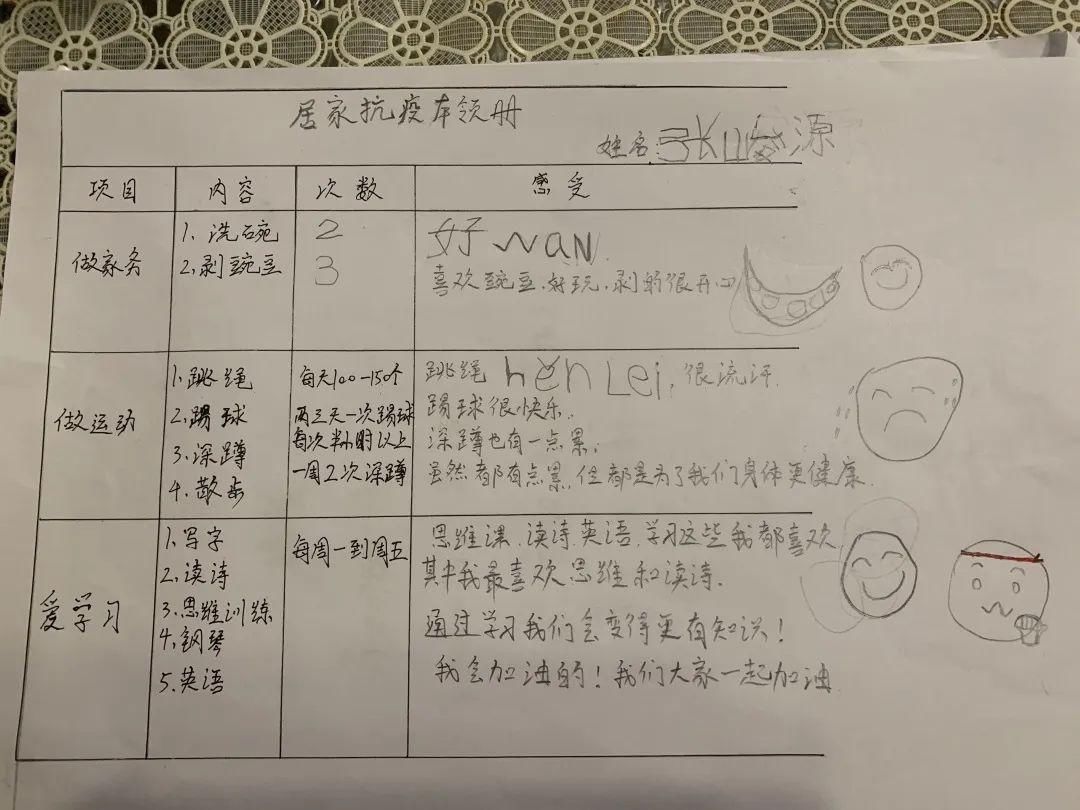 居家抗疫本领册
姓名:张山 源
项目 内容 次数 感受
做家务
1. 洗碗 2
2.剥豌豆 3
好wan
喜欢豌豆.好玩.剥的很开心
做运动
1.跳绳 每天100-150个
2.踢球 两三天一次踢球
每次半小时以上
3.深蹲 一周2次深蹲
4.散步
跳绳hen Lei,很流汗.
踢球很快乐.
深蹲也有一点累;
虽然都有点累,但都是为了我们身体更健康.
爱学习
1.写字 每周一到周五
2.读诗
3.思维训练
4.钢琴
5.英语
思维课.读诗.英语.学习这些我都喜欢
其中我最喜欢思维和读诗.
通过学习我们会变得更有知识!
我会加油的!我们大家一起加油